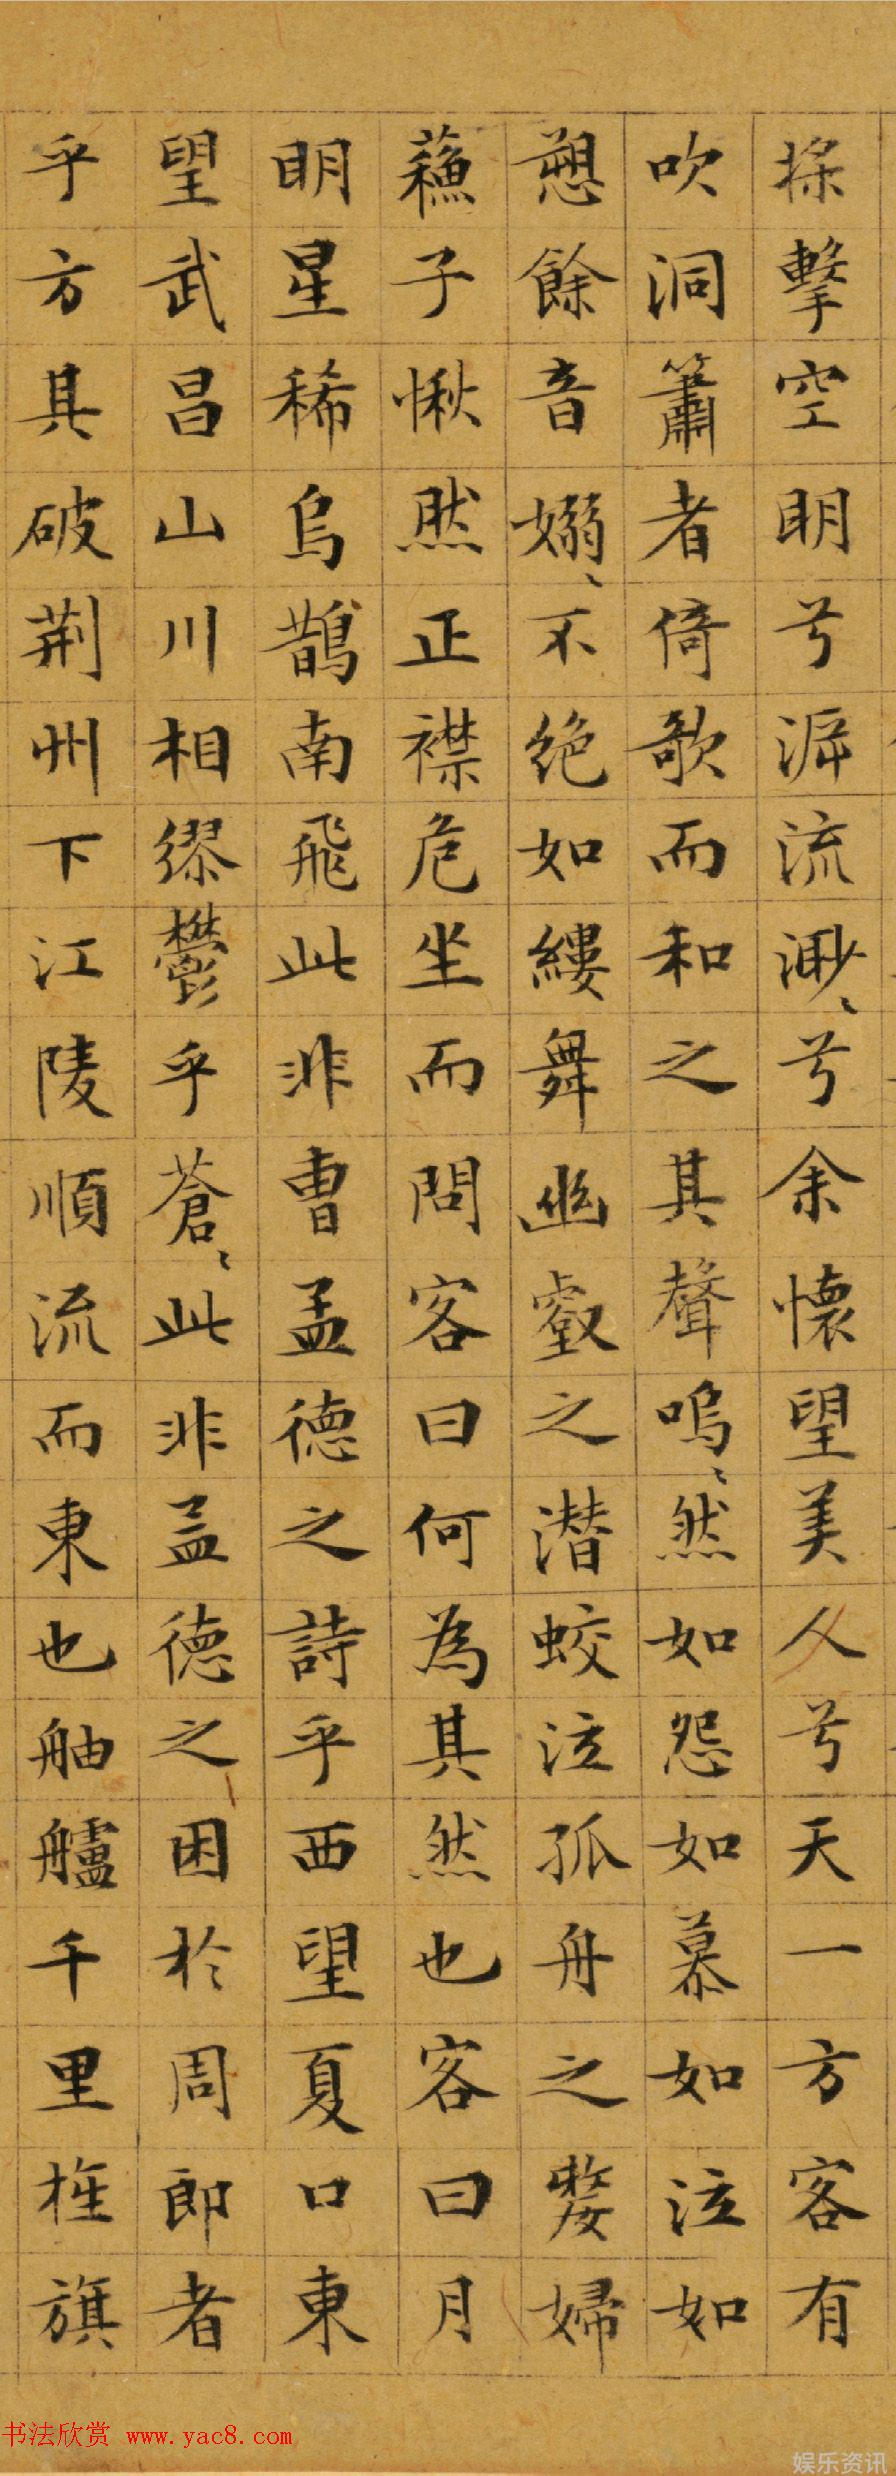 槳擊空明兮泝流渺〻兮余懷望美人兮天一方客有
吹洞簫者倚歌而和之其聲嗚〻然如怨如慕如泣如
愬餘音嫋〻不絕如縷舞幽壑之潛蛟泣孤舟之嫠婦
蘇子愀然正襟危坐而問客曰何為其然也客曰月
明星稀烏鵲南飛此非曹孟德之詩乎西望夏口東
望武昌山川相繆鬱乎蒼〻此非孟德之困於周郎者
乎方其破荆州下江陵順流而東也舳艫千里旌旗
书法欣赏 www.yac8.com
娱乐资讯